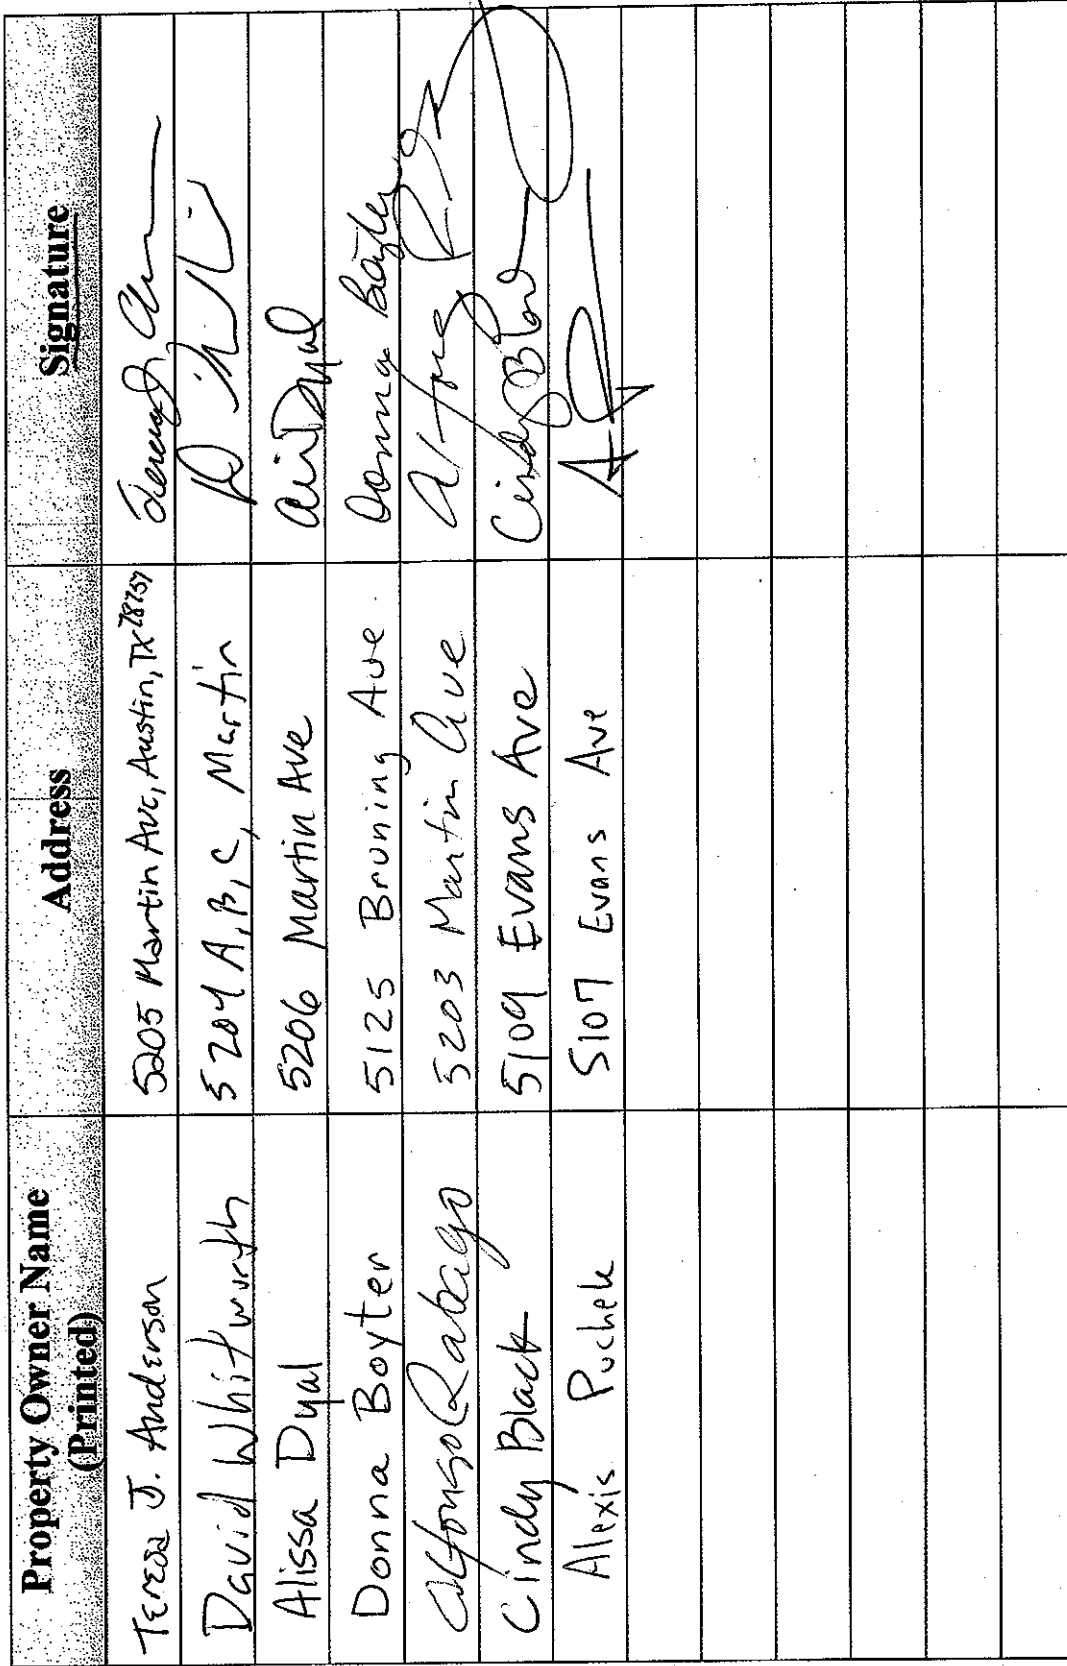 Property Owner Name (Printed) Address Signature
Teresa J. Anderson 5205 Martin Ave, Austin, TX 78757
David Whitworth 5204 A, B, C, Martin
Alissa Dyal 5206 Martin Ave
Donna Boyter 5125 Bruning Ave. Donna Boyter
Alfonso Rabago 5203 Martin Ave
Cindy Black 5109 Evans Ave Cindy Black
Alexis Puchek 5107 Evans Ave